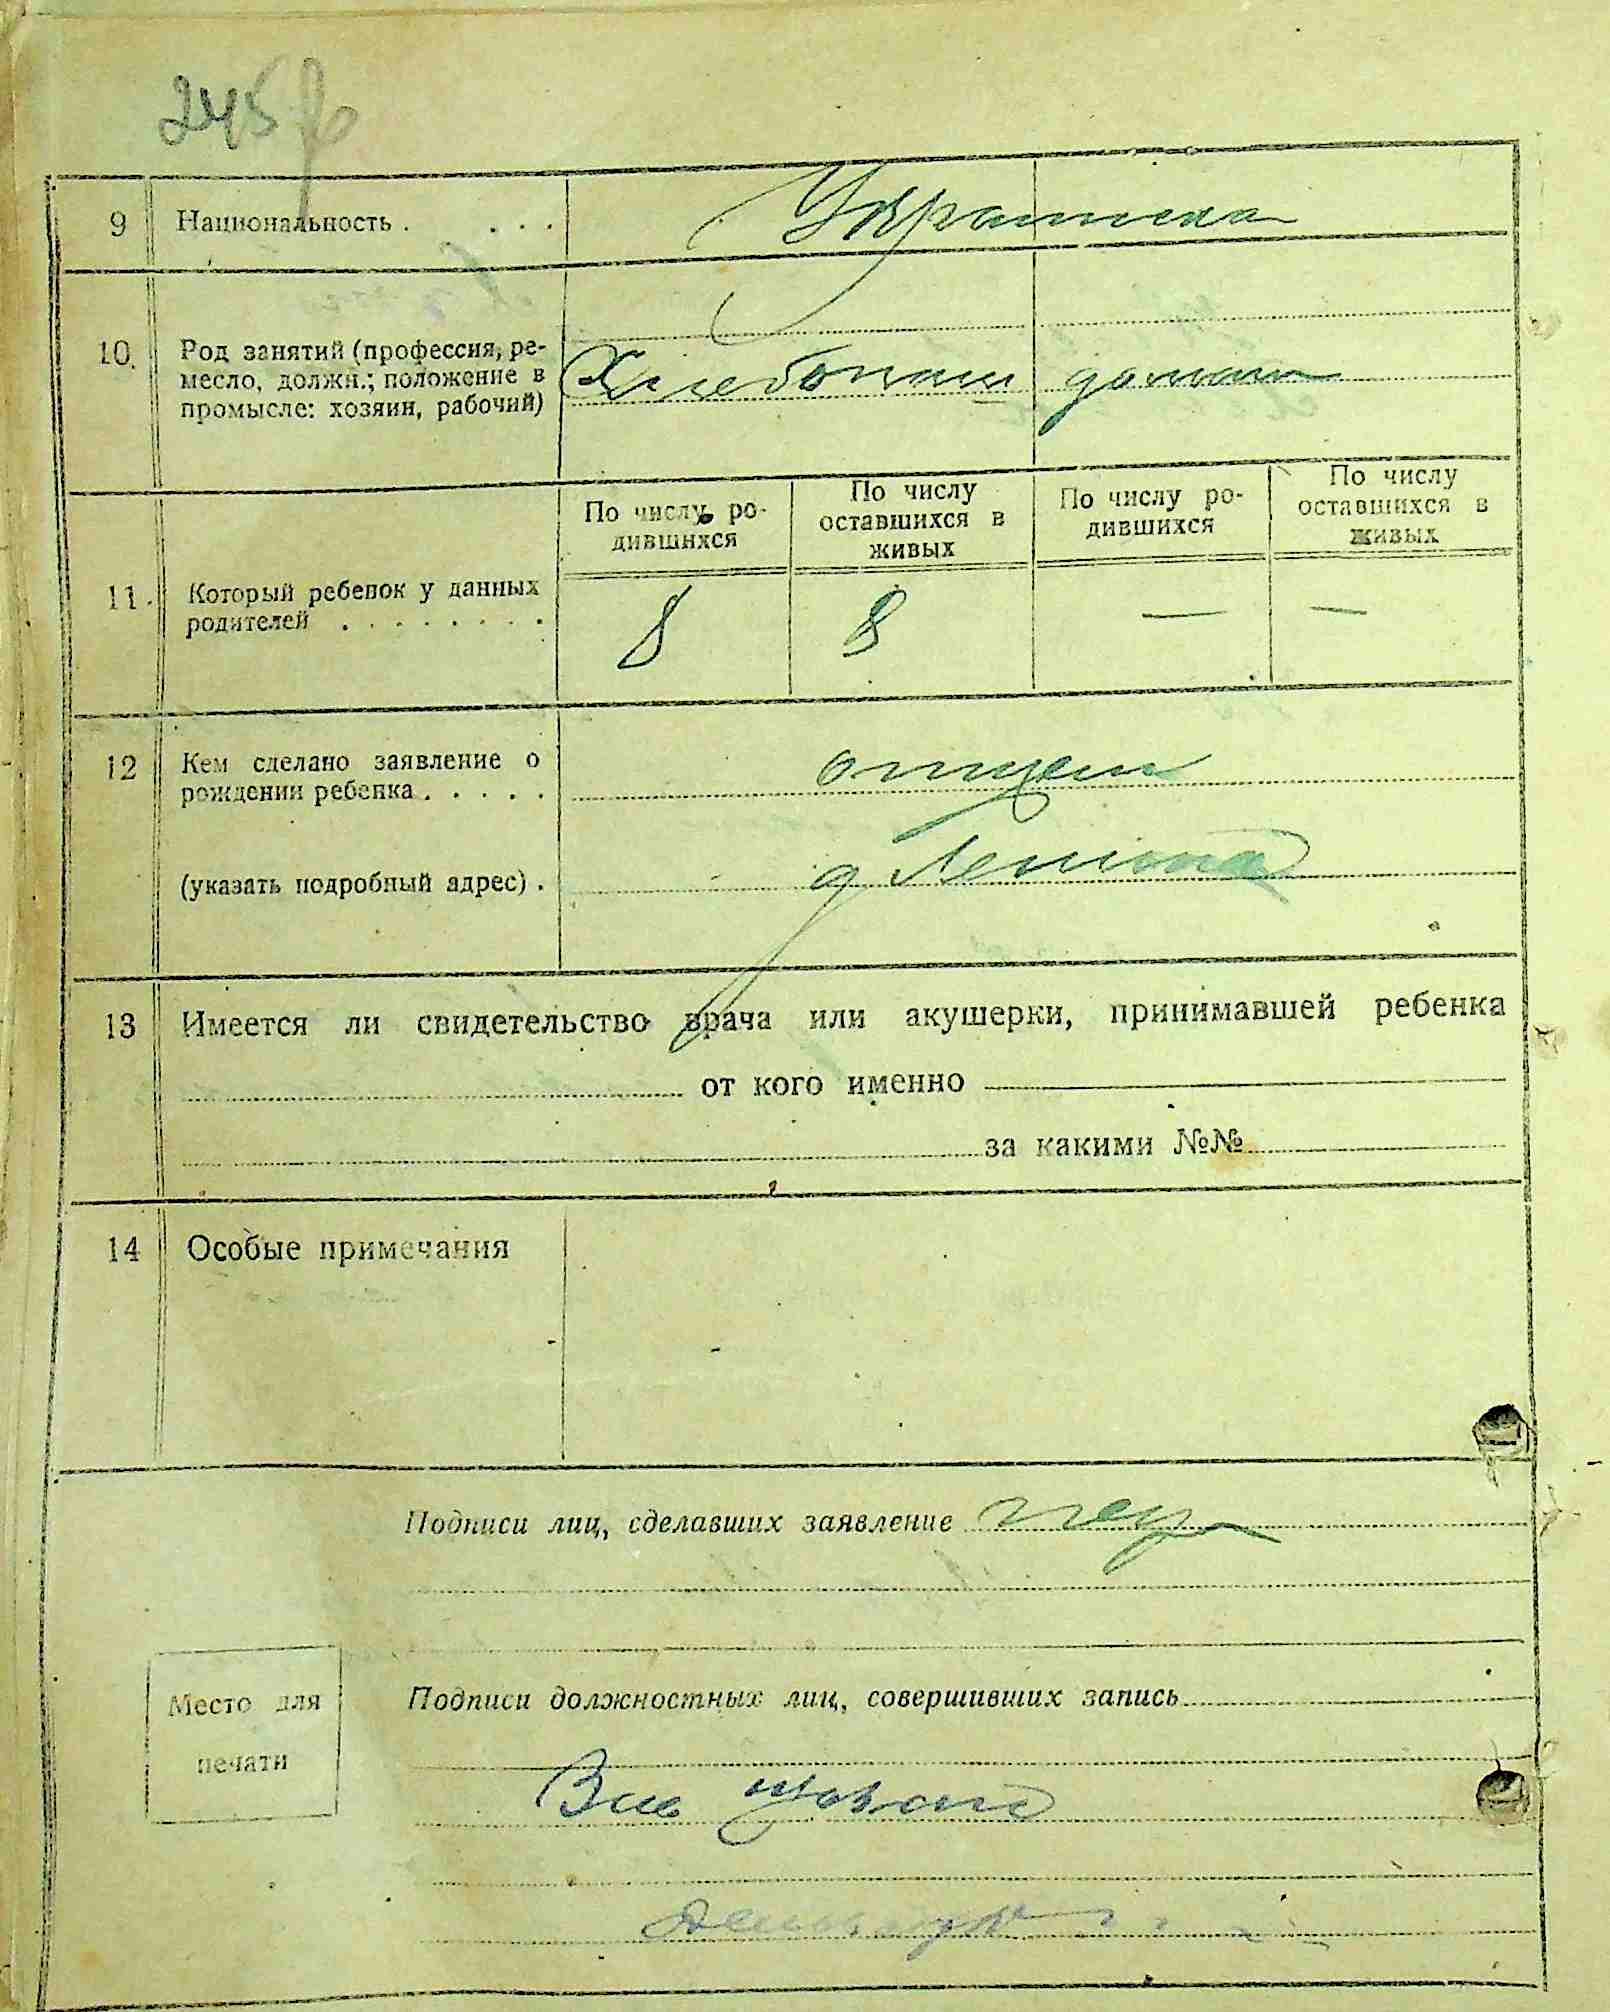 245
9 Национальность . . . . Украинска
10. Род занятий (профессия, ре-
месло, должн.; положение в
промысле: хозяин, рабочий)
Хлебопаш домаш
11. Который ребенок у данных
родителей . . . . . . . .
По числу ро-
дившихся
По числу
оставшихся в
живых
По числу ро-
дившихся
По числу
оставшихся в
живых
8 8 — —
12 Кем сделано заявление о
рождении ребенка . . . . .
отцем
(указать подробный адрес) .
д Ленина
13 Имеется ли свидетельство врача или акушерки, принимавшей ребенка
от кого именно
за какими №№
14 Особые примечания
Подписи лиц, сделавших заявление негр
Место для
печати
Подписи должностных лиц, совершивших запись